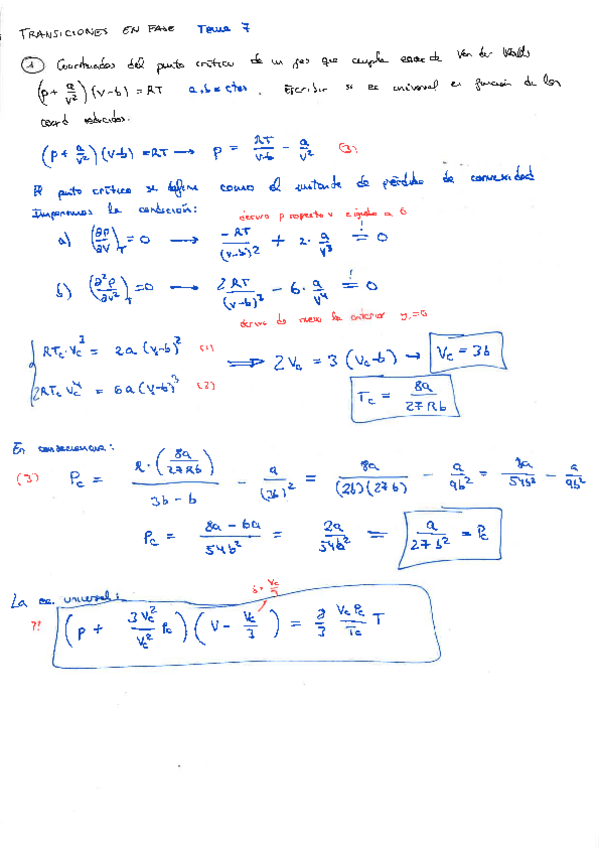 TRANSICIONES EN FASE Tema 7
① Coordenadas del punto crítico de un gas que cumple ecuac de Van der Waals
(p + a/v²)(v-b) = RT a, b = ctes. Escribir su ec universal en función de las
coord reducidas.
(p + a/v²)(v-b) = RT → p = RT/(v-b) - a/v² (3)
El punto crítico se define como el instante de pérdida de convexidad
Imponemos la condición: derivo p respecto v e igualo a 0
a) (∂p/∂v)_T = 0 → -RT/(v-b)² + 2·a/v³ =! 0
b) (∂²p/∂v²)_T = 0 → 2RT/(v-b)³ - 6·a/v⁴ =! 0
derivo de nuevo la anterior y =0
RTc·Vc³ = 2a(Vc-b)² (1)
2RTc Vc⁴ = 6a(Vc-b)³ (2)
⟹ 2Vc = 3(Vc-b) → Vc = 3b
Tc = 8a/27Rb
En consecuencia:
(3) Pc = R·(8a/27Rb)/(3b-b) - a/(3b)² = 8a/(2b)(27b) - a/9b² = 8a/54b² - a/9b²
Pc = (8a-6a)/54b² = 2a/54b² = a/27b² = Pc
La ec. universal: b = Vc/3
?? (p + 3Vc²/Vc² Pc)(V - Vc/3) = 8/3 VcPc/Tc T